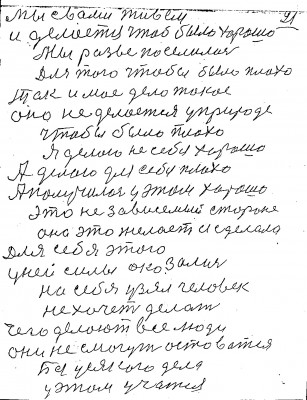 Мы с вами живём 91
и делается чтоб было хорошо
Мы разве поселился
Для того чтобы было плохо
Так и мое дело такое
оно не делается у природе
чтобы было плохо
Я делаю не себя хорошо
А делаю для себя плохо
А получился у этом хорошо
это не зависемый стороне
она это желает и сделала
Для себя этого
у ней силы оказалися
на себя узял человек
не хочет делат
чего делают все люди
они не смогут остатся
без усякого дела
у этом учатся